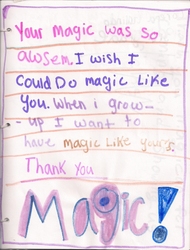 Your Magic was so
awsem. I wish I
Could Do magic Like
You. When i grow-
- up I want to
have magic Like yours.
Thank You
Magic!